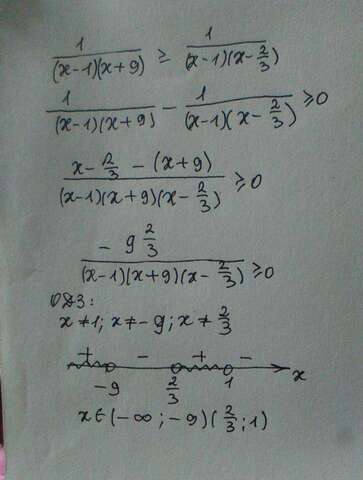 1/((x-1)(x+9)) ≥ 1/((x-1)(x-2/3))
1/((x-1)(x+9)) - 1/((x-1)(x-2/3)) ≥ 0
(x-2/3-(x+9))/((x-1)(x+9)(x-2/3)) ≥ 0
(-9 2/3)/((x-1)(x+9)(x-2/3)) ≥ 0
ОДЗ:
x≠1; x≠-9; x≠2/3
+ - + -
-9 2/3 1 x
x∈(-∞;-9)(2/3;1)